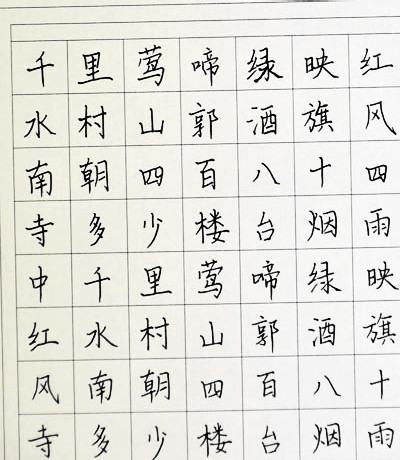 千里莺啼绿映红
水村山郭酒旗风
南朝四百八十四
寺多少楼台烟雨
中千里莺啼绿映
红水村山郭酒旗
风南朝四百八十
寺多少楼台烟雨